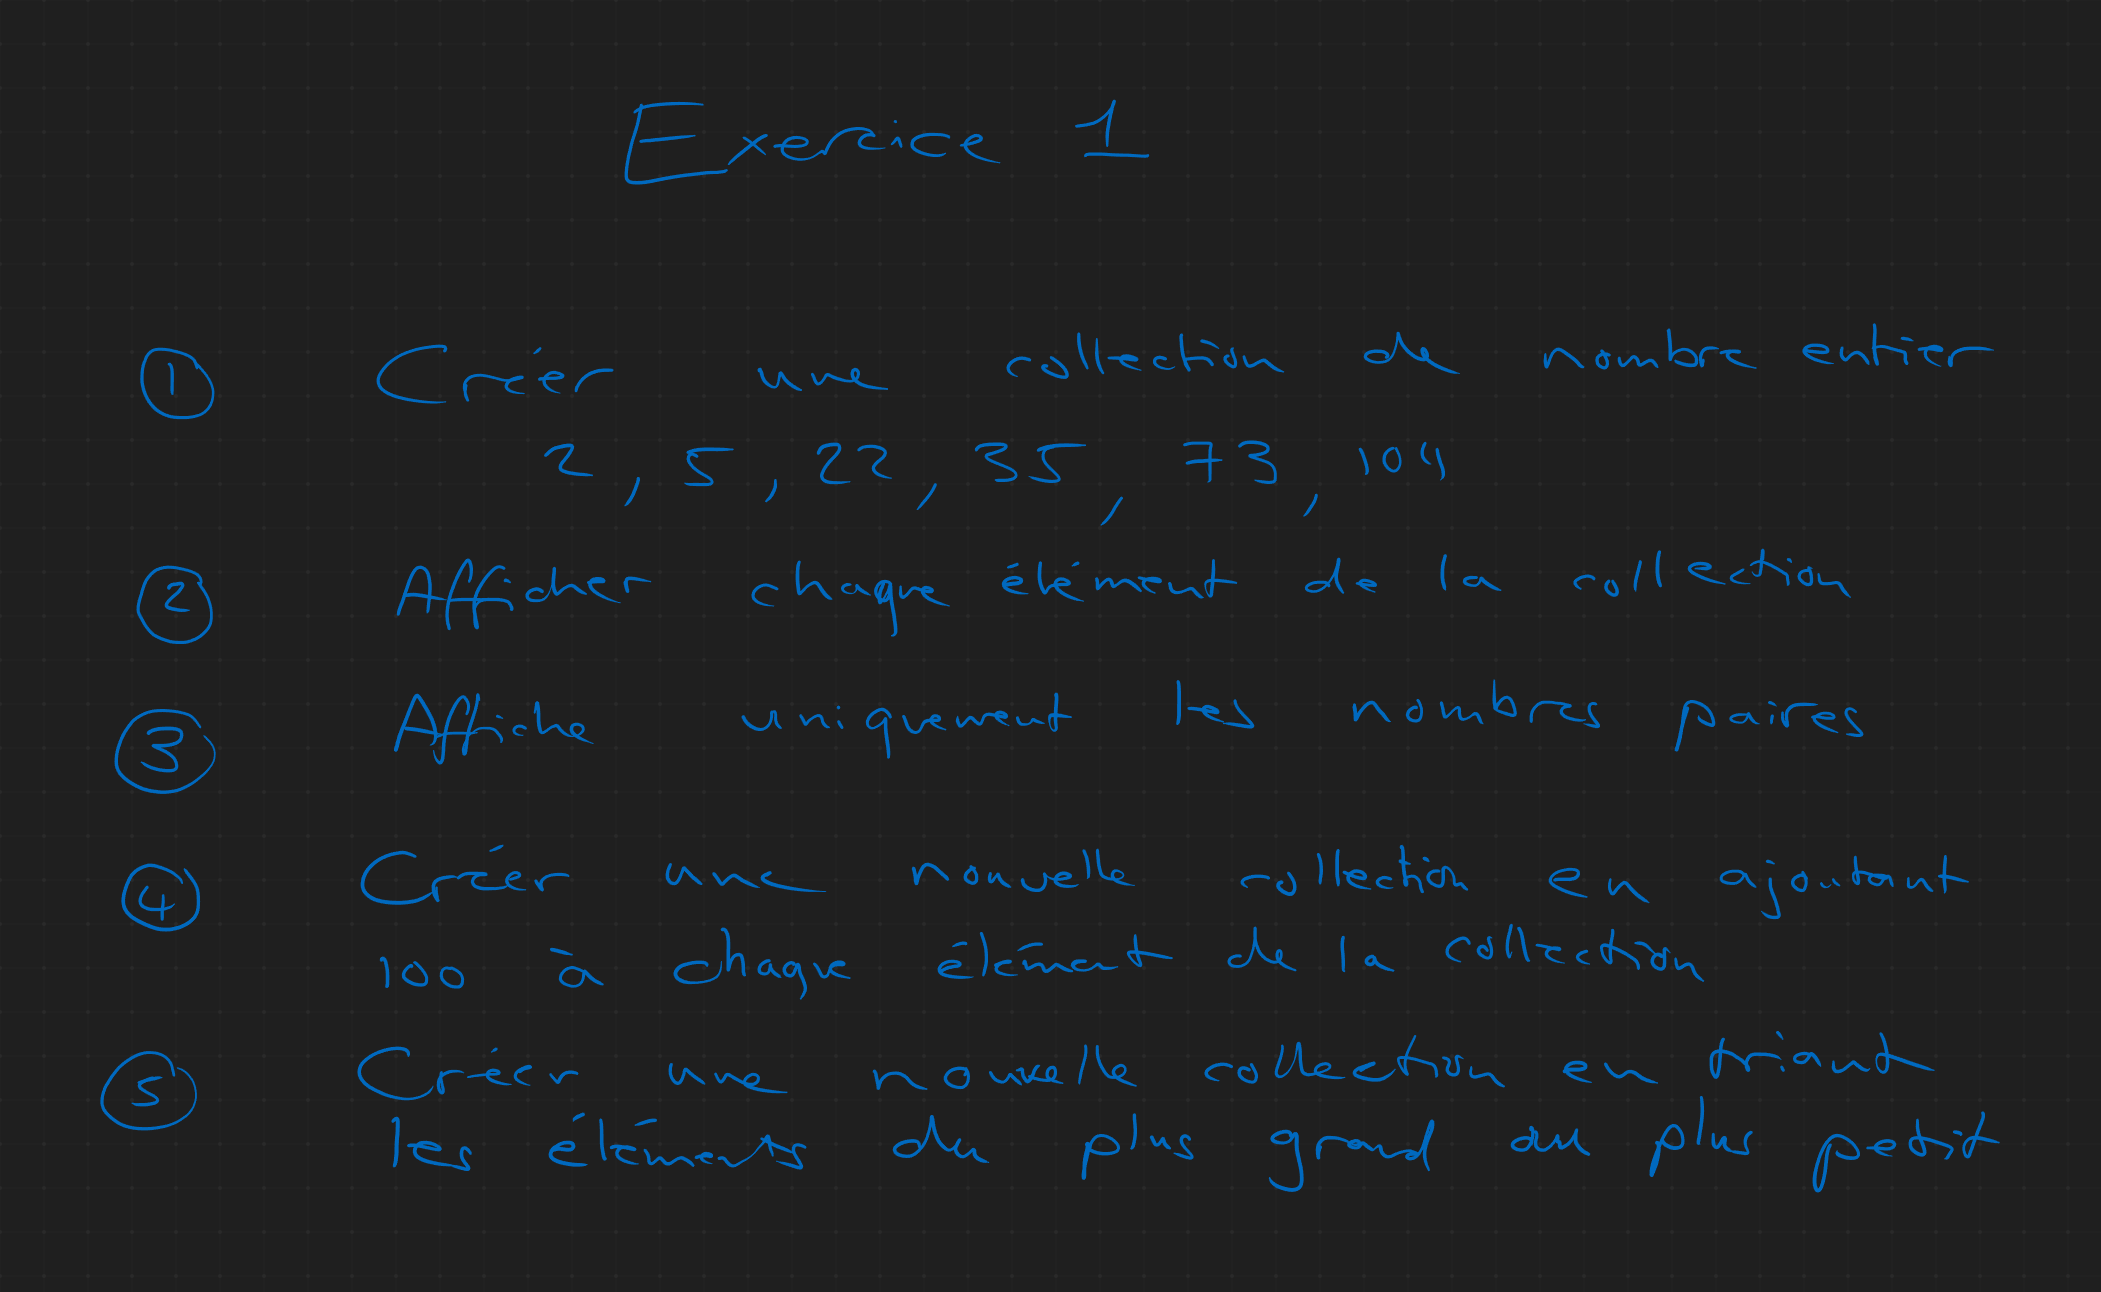 Exercice 1
① Créer une collection de nombre entier
2, 5, 22, 35, 73, 104
② Afficher chaque élément de la collection
③ Affiche uniquement les nombres paires
④ Créer une nouvelle collection en ajoutant
100 à chaque élément de la collection
⑤ Créer une nouvelle collection en triant
les éléments du plus grand au plus petit